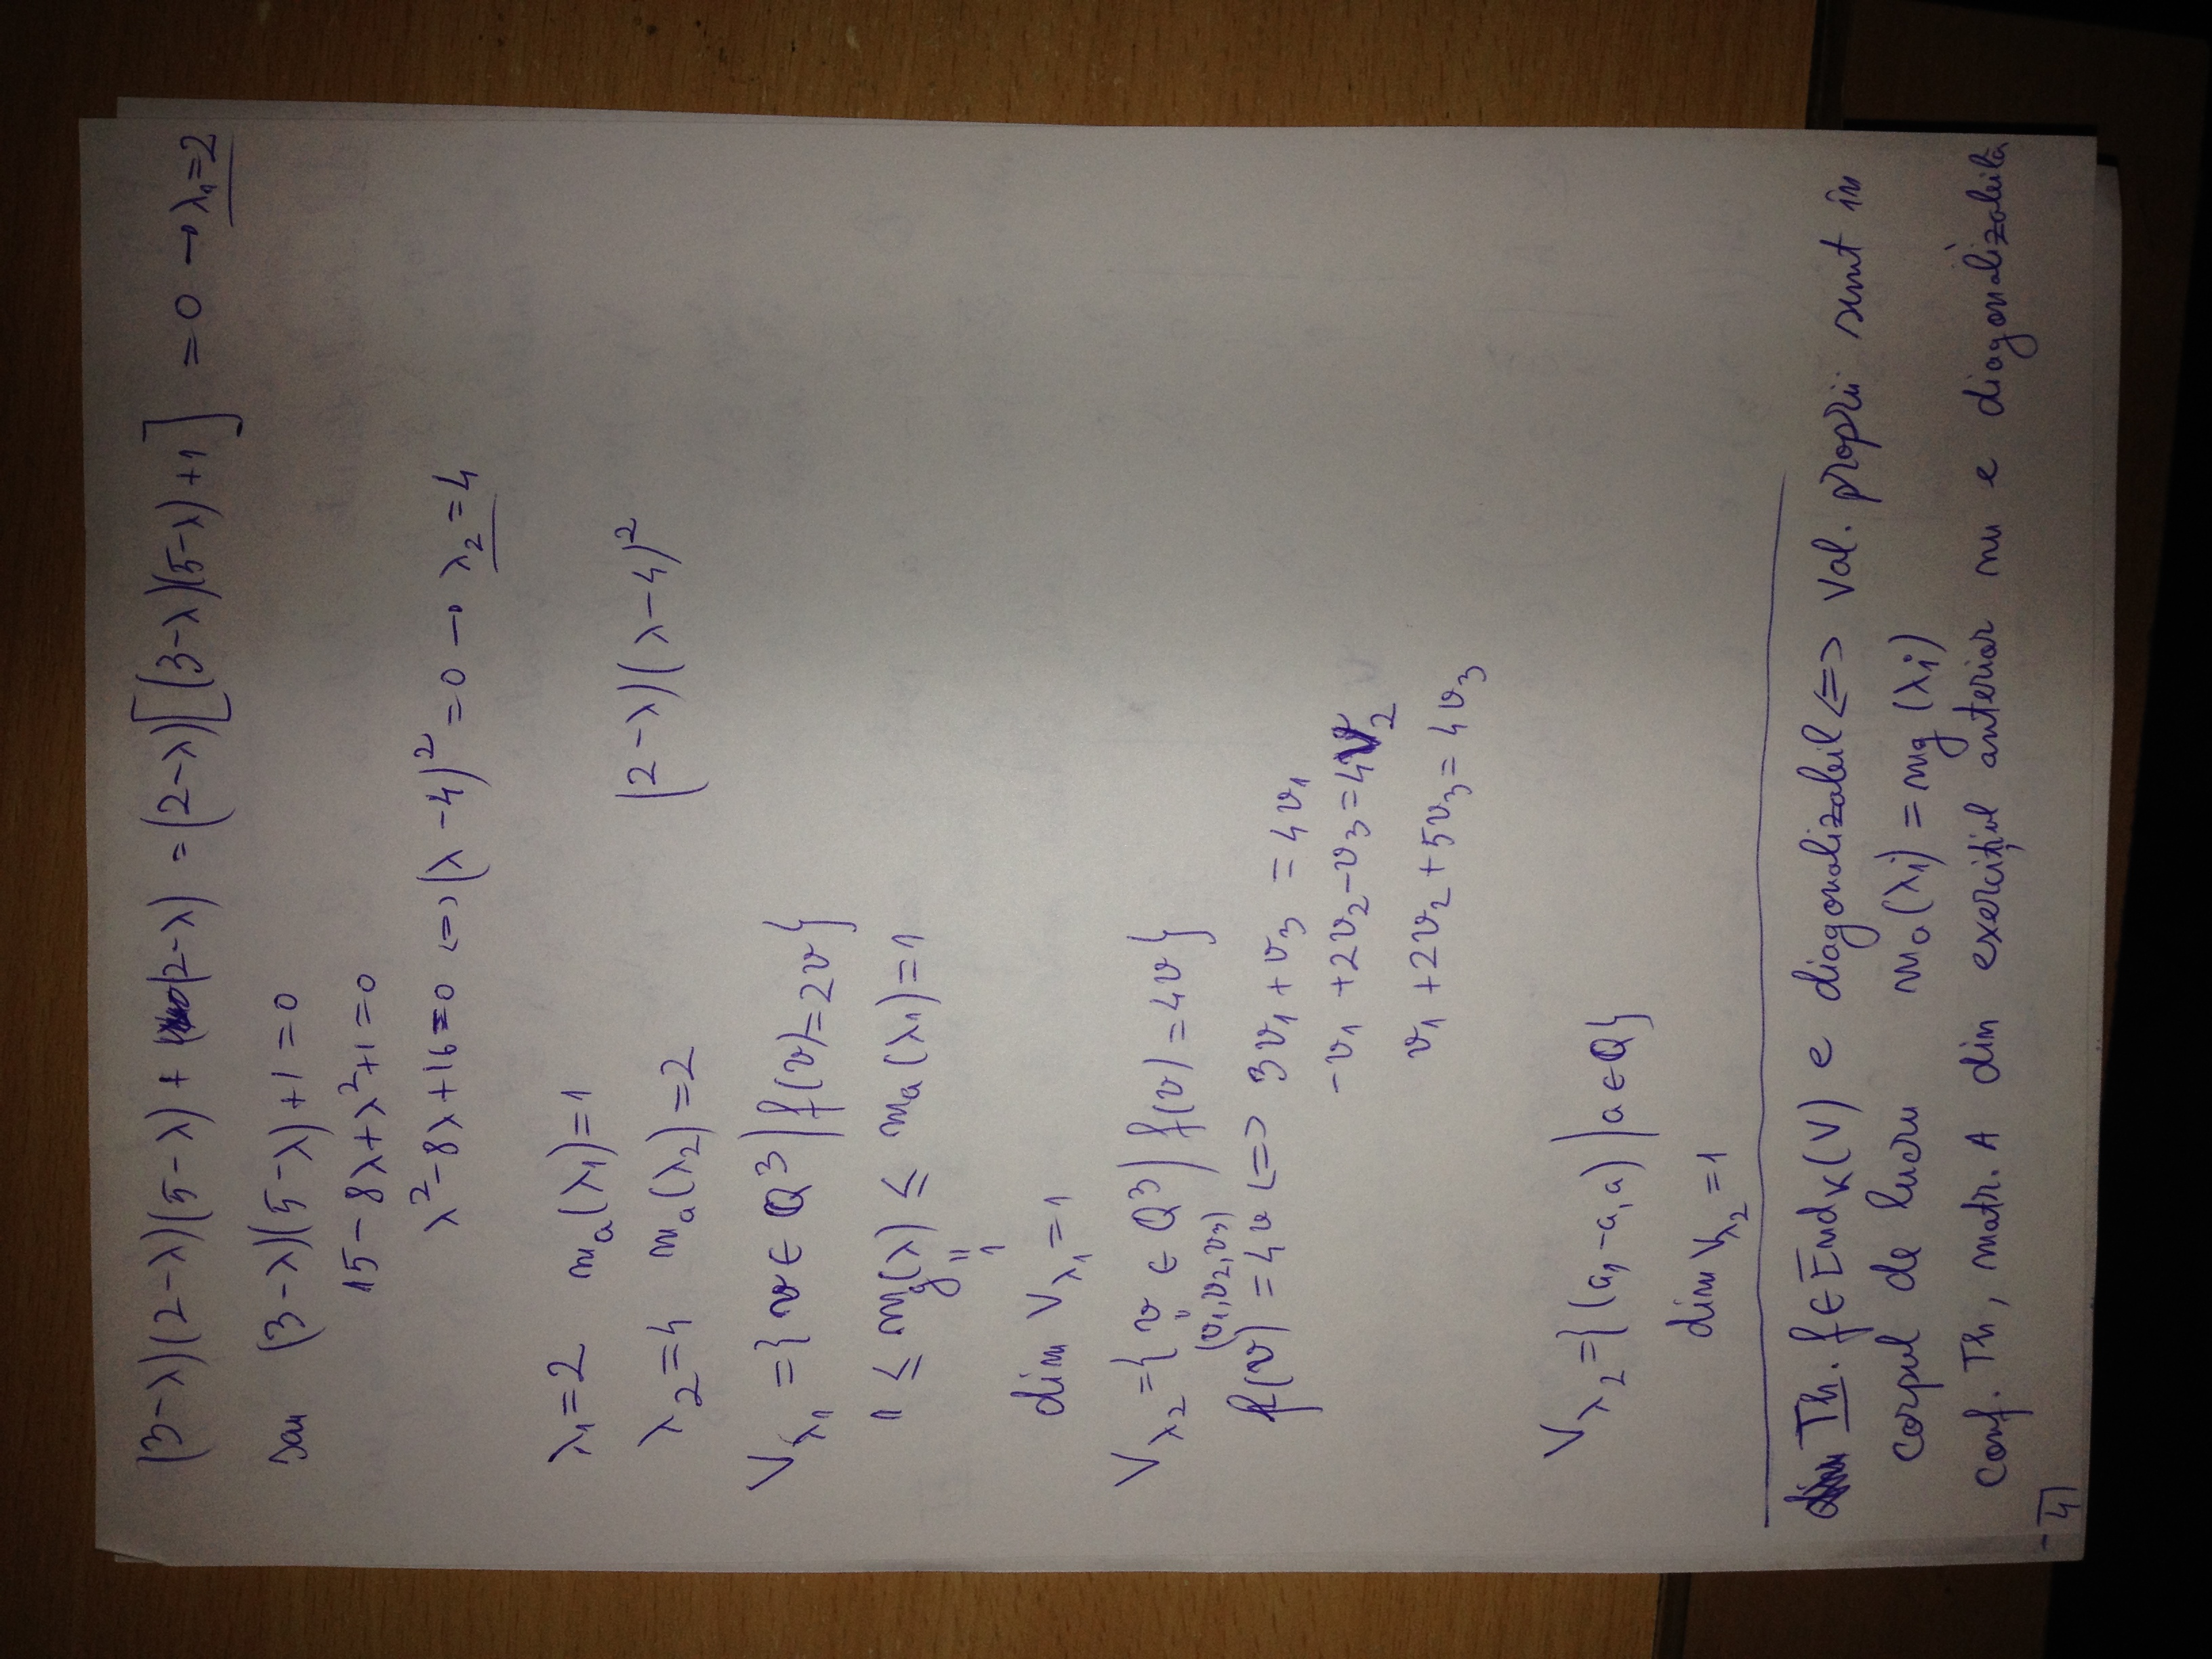 (3-λ)(2-λ)(5-λ) + (2-λ) = (2-λ)[(3-λ)(5-λ)+1] = 0 → λ₁=2
sau (3-λ)(5-λ)+1=0
15-8λ+λ²+1=0
λ²-8λ+16=0 <=> (λ-4)²=0 → λ₂=4
λ₁=2 mₐ(λ₁)=1
(2-λ)(λ-4)²
λ₂=4 mₐ(λ₂)=2
V_λ₁ = {v ∈ Q³ | f(v)=2v}
1 ≤ m_g(λ) ≤ mₐ(λ₁)=1
"
1
dim V_λ₁ = 1
V_λ₂ = {v ∈ Q³ | f(v)=4v}
"
(v₁,v₂,v₃)
f(v) = 4v <=> 3v₁+v₃ = 4v₁
-v₁+2v₂-v₃=4v₂
v₁+2v₂+5v₃=4v₃
V_λ₂ = {(a,-a,a) | a∈Q}
dim V_λ₂ = 1
Th. f∈End_K(V) e diagonalizabil <=> val. proprii sunt în
corpul de lucru mₐ(λᵢ) = m_g(λᵢ)
conf. Th, matr. A din exercițiul anterior nu e diagonalizabilă
4